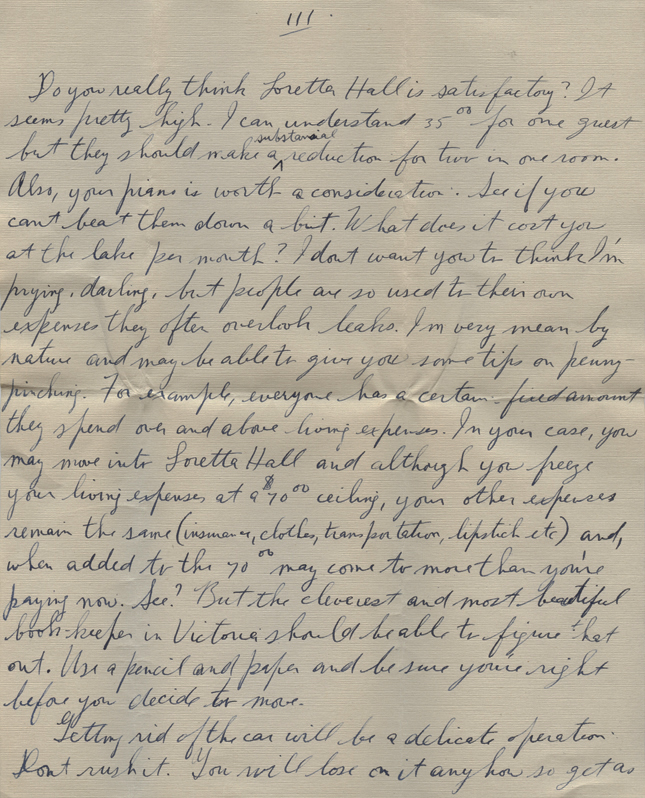 111.
Do you really think Loretta Hall is satisfactory? It
seems pretty high. I can understand 35 00 for one guest
substancial
but they should make ^ reduction for two in one room.
Also, your piano is worth a consideration. See if you
cant beat them down a bit. What does it cost you
at the lake per month? I dont want you to think I'm
prying, darling, but people are so used to their own
expenses they often overlook leaks. I'm very mean by
nature and may be able to give you some tips on penny-
pinching. For example, everyone has a certain fixed amount
they spend over and above living expenses. In your case, you
may move into Loretta Hall and although you freeze
your living expenses at a $70 00 ceiling, your other expenses
remain the same (insurance, clothes, transportation, lipstick etc) and,
when added to the 70 00 may come to more than you're
paying now. See? But the cleverest and most beautiful
book-keeper in Victoria should be able to figure that
out. Use a pencil and paper and be sure you're right
before you decide to move.
Getting rid of the car will be a delicate operation.
Dont rush it. You will lose on it anyhow so get as